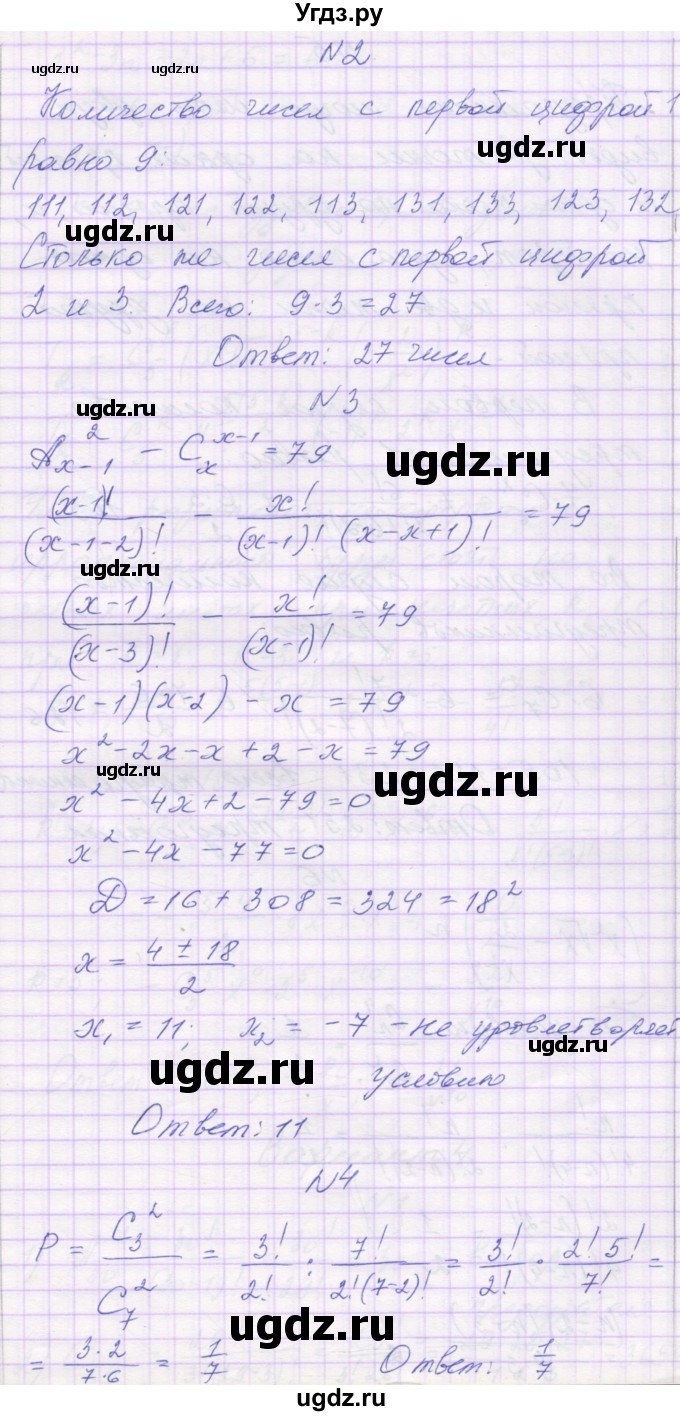 Угдз.ру
N2
ugdz.ru ugdz.ru
Количество чисел с первой цифрой 1
ugdz.ru
равно 9:
111, 112, 121, 122, 113, 131, 133, 123, 132
ugdz.ru
Столько же чисел с первой цифрой
2 и 3. Всего: 9·3=27
ugdz.ru
Ответ: 27 чисел.
N3
ugdz.ru
A²ₓ₋₁ − Cₓˣ⁻¹ = 79
ugdz.ru
(x-1)!/(x-1-2)! − x!/((x-1)!(x-x+1)!) = 79
ugdz.ru
(x-1)!/(x-3)! − x!/(x-1)! = 79
ugdz.ru
(x-1)(x-2) - x = 79
x²-2x-x+2-x=79
ugdz.ru ugdz.ru
x²-4x+2-79=0
x²-4x-77=0
D=16+308=324=18²
x = (4±18)/2
ugdz.ru
x₁=11; x₂=-7 - не удовлетворяет
ugdz.ru ugdz.ru
условию
Ответ: 11
N4
ugdz.ru
P = C₃²/C₇² = 3!/2! : 7!/(2!(7-2)!) = 3!/2! · 2!5!/7! =
ugdz.ru
= 3·2/7·6 = 1/7 Ответ: 1/7
ugdz.ru ugdz.ru
ugdz.ru